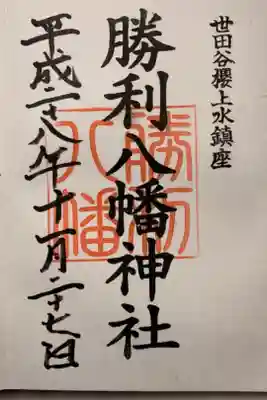 世田谷櫻上水鎮座
勝利八幡神社
勝利八幡
平成二十八年十一月二十七日